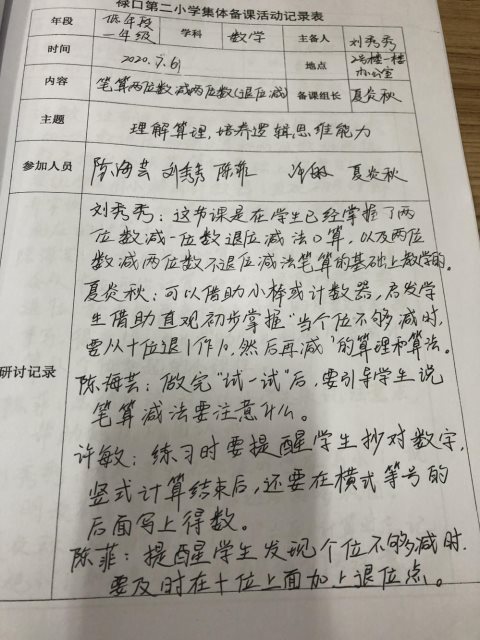 禄口第二小学集体备课活动记录表
年段 低年段 一年级 学科 数学 主备人 刘秀秀
时间 2020.5.6 地点 2号楼一楼办公室
内容 笔算两位数减两位数(退位减) 备课组长 夏炎秋
主题 理解算理,培养逻辑思维能力
参加人员 陈海芸 刘秀秀 陈菲 许敏 夏炎秋
研讨记录
刘秀秀:这节课是在学生已经掌握了两
位数减一位数退位减法口算,以及两位
数减两位数不退位减法笔算的基础上教学的。
夏炎秋:可以借助小棒或计数器,启发学
生借助直观初步掌握"当个位不够减时,
要从十位退1作10,然后再减"的算理和算法。
陈海芸:做完"试一试"后,要引导学生说
笔算减法要注意什么。
许敏:练习时要提醒学生抄对数字,
竖式计算结束后,还要在横式等号的
后面写上得数。
陈菲:提醒学生发现个位不够减时,
要及时在十位上面加上退位点。